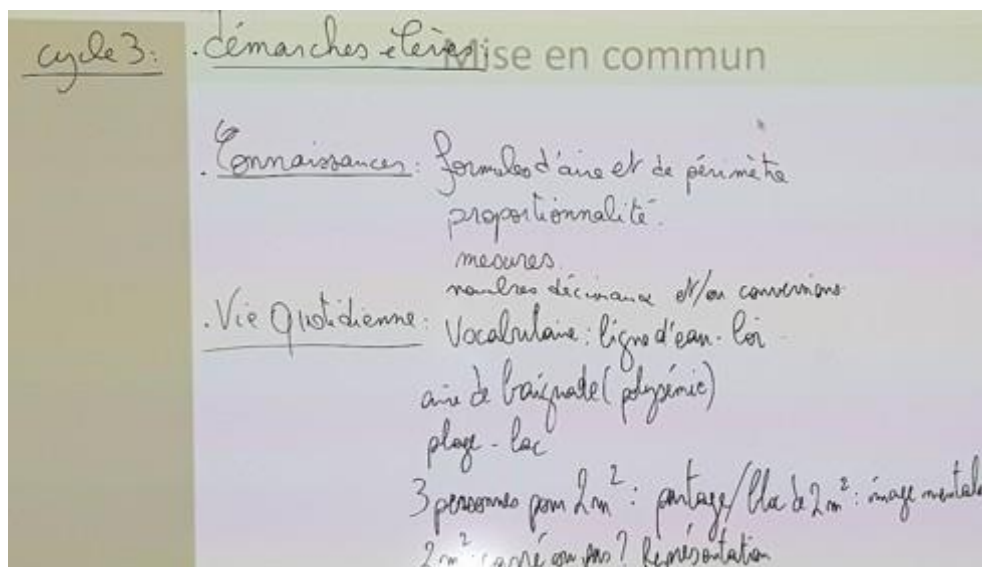 cycle 3: . démarches élèves Mise en commun
. Connaissances : formules d'aire et de périmètre
proportionnalité.
mesures
nombres décimaux et/ou conversions
. Vie Quotidienne : Vocabulaire : ligne d'eau - loi
aire de baignade (polysémie)
plage - lac
3 personnes pour 2m² : partage / bloc de 2m² : image mentale
2m² : carré ou pas ? Représentation